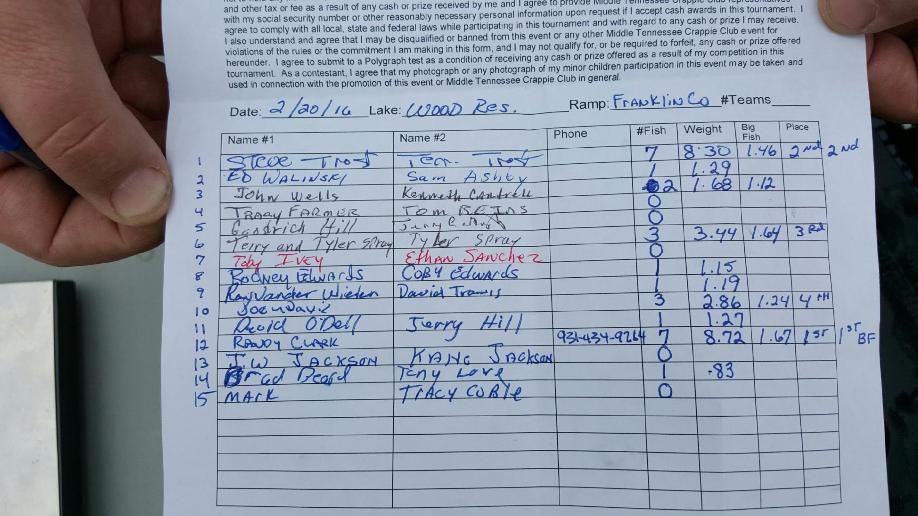 and other tax or fee as a result of any cash or prize received by me and I agree to provide Middle Tennessee Crappie Club representatives
with my social security number or other reasonably necessary personal information upon request if I accept cash awards in this tournament. I
agree to comply with all local, state and federal laws while participating in this tournament and with regard to any cash or prize I may receive.
I also understand and agree that I may be disqualified or banned from this event or any other Middle Tennessee Crappie Club event for
violations of the rules or the commitment I am making in this form, and I may not qualify for, or be required to forfeit, any cash or prize offered
hereunder. I agree to submit to a Polygraph test as a condition of receiving any cash or prize offered as a result of my competition in this
tournament. As a contestant, I agree that my photograph or any photograph of my minor children participation in this event may be taken and
used in connection with the promotion of this event or Middle Tennessee Crappie Club in general.
Date: 2/20/16 Lake: WOOD RES. Ramp: FRANKLIN CO #Teams
Name #1 Name #2 Phone #Fish Weight Big Fish Place
1 Steve Trost Trost 7 8.30 1.46 2nd 2nd
2 ED WALINSKI Sam Ashby 1 1.29
3 John Wells Kenneth Cantrell 2 1.68 1.12
4 TRACY FARMER TOM 0
5 Hill 0
6 Terry and Tyler Spray Tyler Spray 3 3.44 1.64 3Rd
7 Toby IVEY Ethan Sanchez 0
8 Rodney Edwards COBY Edwards 1 1.15
9 Ray Vander David Travis 1 1.19
10 3 2.86 1.24 4TH
11 David O'Dell Jerry Hill 1 1.27
12 RANDY CLARK 931-434-9264 7 8.72 1.67 1ST 1ST BF
13 J.W JACKSON JACKSON 0
14 Brad Beard Tony Love 1 .83
15 MARK TRACY COBLE 0